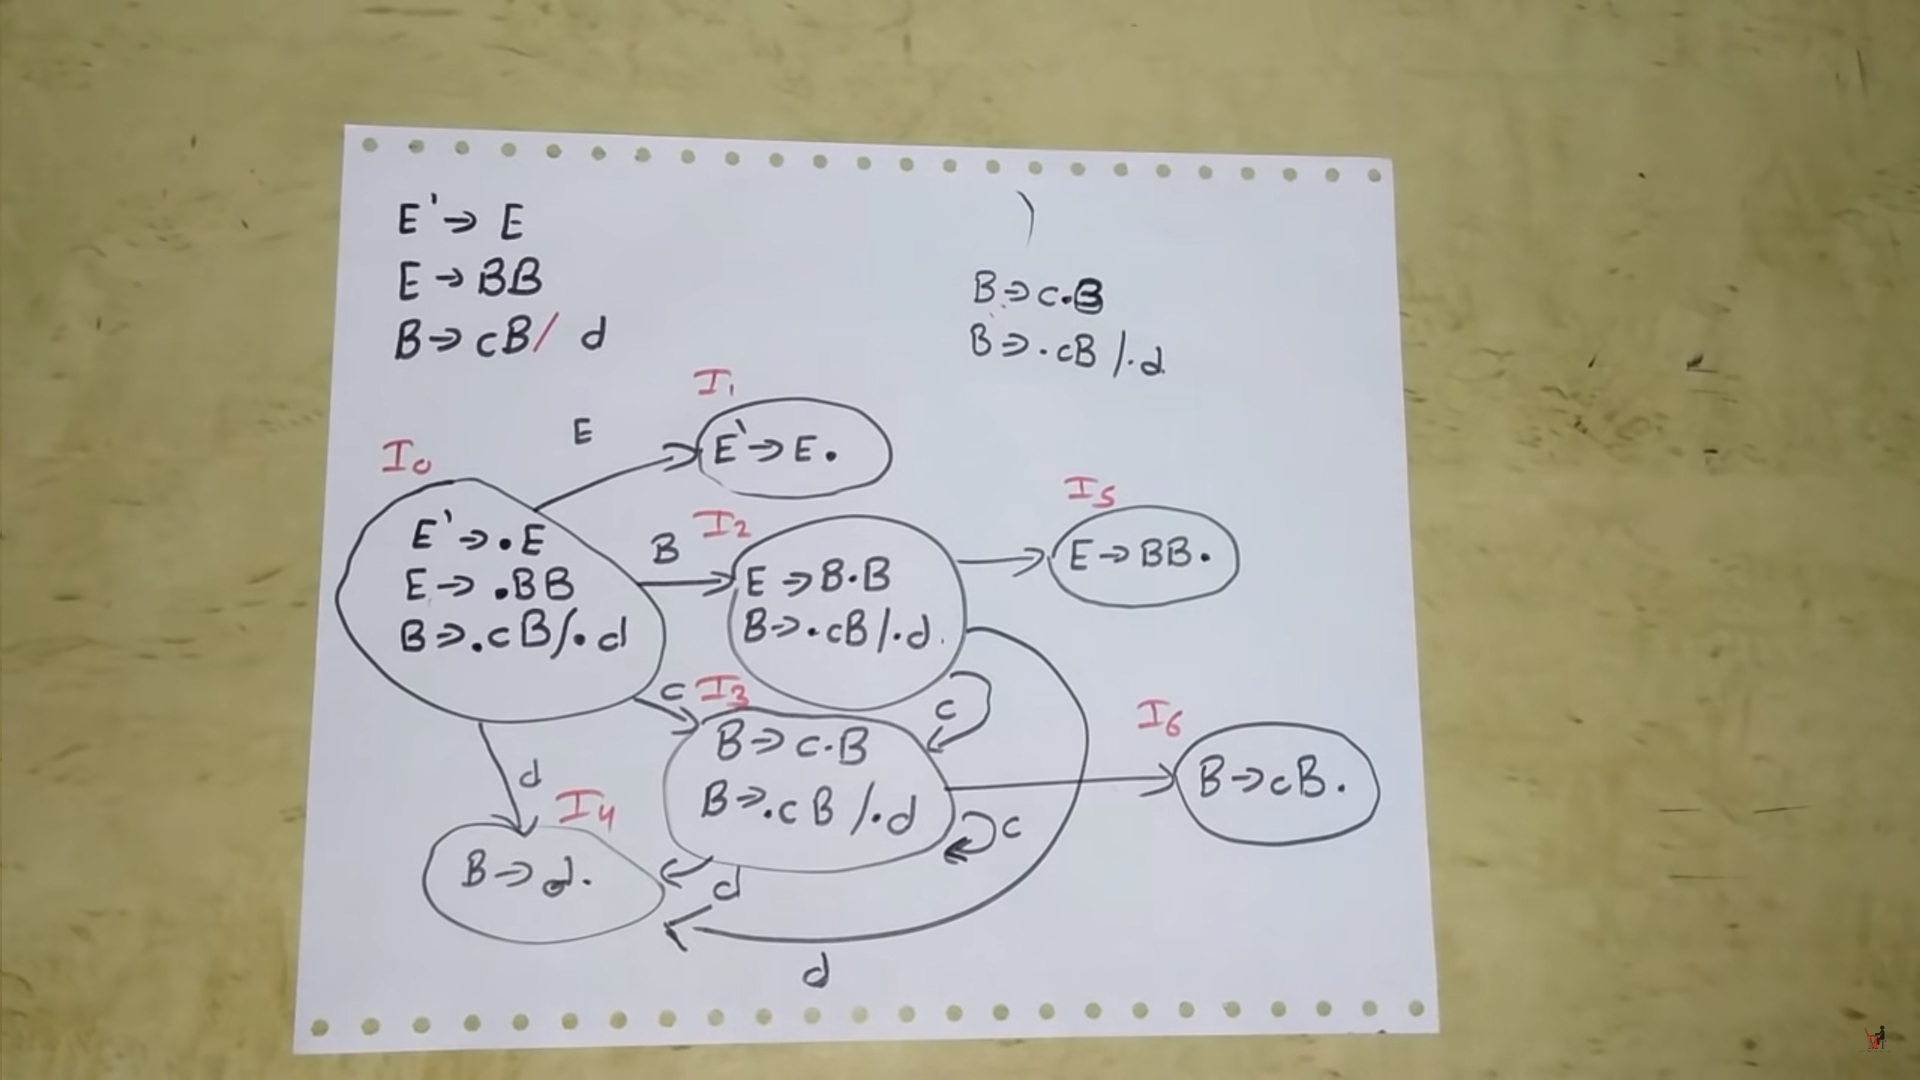 E' → E
E → BB
B → cB/ d
B → c.B
B → .cB /.d
I1
E
E' → E.
I0
E' → .E
E → .BB
B → .cB/.d
B
I2
E → B.B
B → .cB/.d.
I5
E → BB.
c
I3
B → c.B
B → .cB /.d
c
c
I6
B → cB.
d
I4
B → d.
d
d